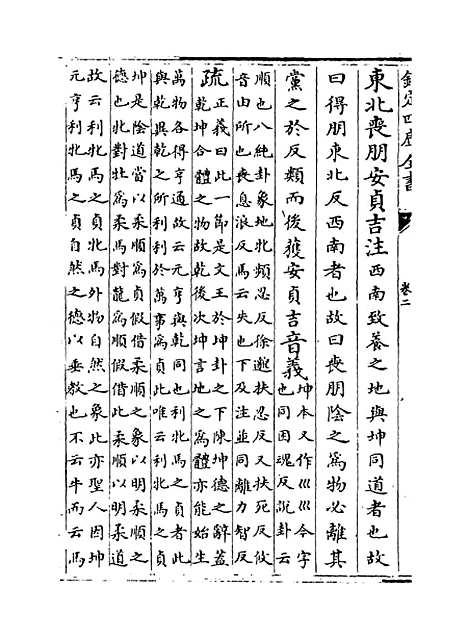 欽定四庫全書 卷二
東北喪朋安貞吉注西南致養之地與坤同道者也故
曰得朋東北反西南者也故曰喪朋陰之為物必離其
黨之於反類而後獲安貞吉音義坤本又作巛巛今字
也同困魂反說卦云
順也八純卦象地牝頻忍反徐邈扶忍反又扶死反攸
音由所也喪息浪反馬云失也下及注並同離力智反
疏正義曰此一節是文王於坤卦之下陳坤德之辭蓋
乾坤合體之物故乾後次坤言地之為體亦能始生
萬物各得亨通故云元亨與乾同也利牝馬之貞者此
與乾異乾之所利利於萬事為貞此唯云利牝馬之貞
坤是陰道當以柔順為貞假借柔順之象以明柔順之
德也牝對牡為柔馬對龍為順假借此柔順以明柔道
故云利牝馬之貞牝馬外物自然之象此亦聖人因坤
元亨利牝馬之貞自然之德以垂教也不云牛而云馬